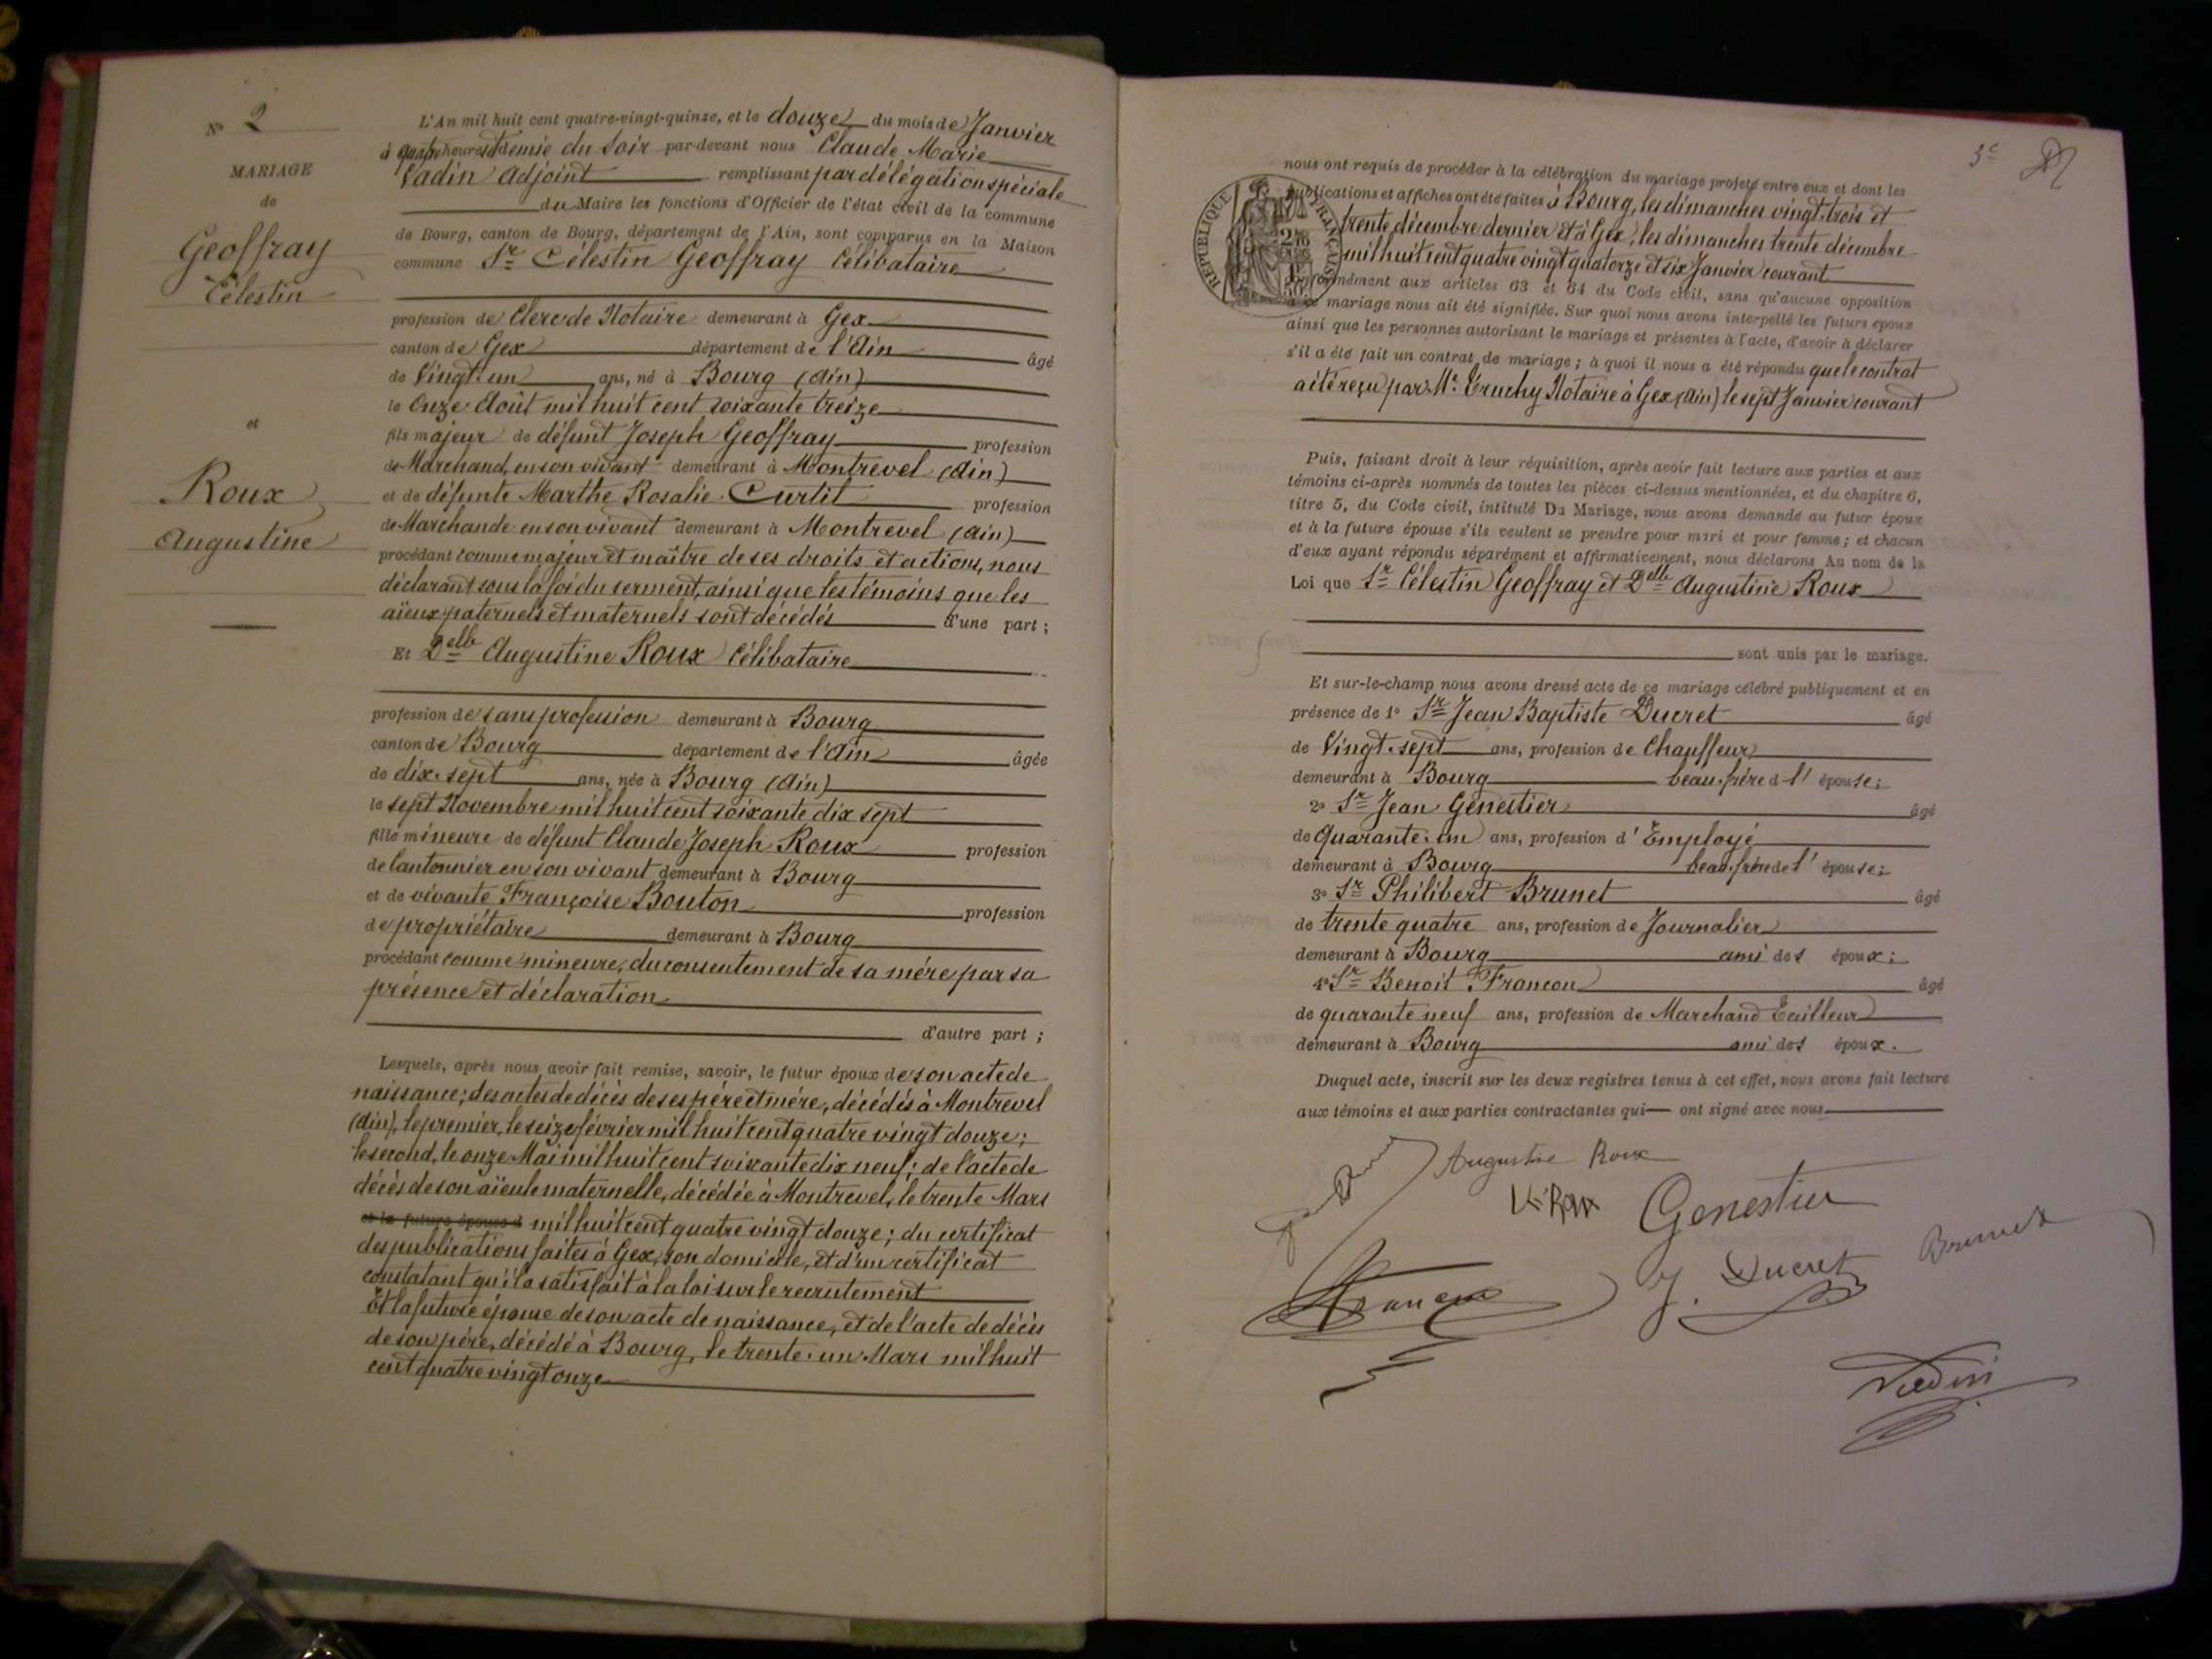 N° 2
MARIAGE
de
Geoffray
Célestin
et
Roux
Augustine
L'An mil huit cent quatre-vingt-quinze, et le douze du mois de Janvier
à quatre heures et demie du soir par-devant nous Claude Marie
Vadin adjoint remplissant par délégation spéciale
du Maire les fonctions d'Officier de l'état civil de la commune
de Bourg, canton de Bourg, département de l'Ain, sont comparus en la Maison
commune Sr Célestin Geoffray Célibataire
profession de Clerc de Notaire demeurant à Gex
canton de Gex département de l'Ain âgé
de Vingt-un ans, né à Bourg (Ain)
le Onze Août mil huit cent soixante treize
fils majeur de défunt Joseph Geoffray profession
de Marchand, en son vivant demeurant à Montrevel (Ain)
et de défunte Marthe Rosalie Curtil profession
de Marchande en son vivant demeurant à Montrevel (Ain)
procédant comme majeur et maître de ses droits et actions, nous
déclarant sous la foi du serment, ainsi que les témoins que les
aïeux paternels et maternels sont décédés d'une part ;
Et Delle Augustine Roux Célibataire
profession de sans profession demeurant à Bourg
canton de Bourg département de l'Ain âgée
de dix-sept ans, née à Bourg (Ain)
le sept Novembre mil huit cent soixante dix sept
fille mineure de défunt Claude Joseph Roux profession
de Cantonnier en son vivant demeurant à Bourg
et de vivante Françoise Bouton profession
de propriétaire demeurant à Bourg
procédant comme mineure, du consentement de sa mère par sa
présence et déclaration
d'autre part ;
Lesquels, après nous avoir fait remise, savoir, le futur époux de son acte de
naissance ; des actes de décès de ses père et mère, décédés à Montrevel
(Ain), le premier, le seize février mil huit cent quatre vingt douze ;
le second, le onze Mai mil huit cent soixante dix neuf ; de l'acte de
décès de son aïeule maternelle, décédée à Montrevel, le trente Mars
et la future épouse d mil huit cent quatre vingt douze ; du certificat
des publications faites à Gex, son domicile, et d'un certificat
constatant qu'il a satisfait à la loi sur le recrutement
Et la future épouse de son acte de naissance, et de l'acte de décès
de son père, décédé à Bourg, le trente-un Mars mil huit
cent quatre vingt onze
3e
RÉPUBLIQUE FRANÇAISE
nous ont requis de procéder à la célébration du mariage projeté entre eux et dont les
publications et affiches ont été faites à Bourg, les dimanches vingt-trois et
trente décembre dernier et à Gex, les dimanches trente décembre
mil huit cent quatre vingt quatorze et six Janvier courant
conformément aux articles 63 et 64 du Code civil, sans qu'aucune opposition
à ce mariage nous ait été signifiée. Sur quoi nous avons interpellé les futurs époux
ainsi que les personnes autorisant le mariage et présentes à l'acte, d'avoir à déclarer
s'il a été fait un contrat de mariage ; à quoi il nous a été répondu que le contrat
a été reçu par Me Truchy Notaire à Gex (Ain) le sept Janvier courant
Puis, faisant droit à leur réquisition, après avoir fait lecture aux parties et aux
témoins ci-après nommés de toutes les pièces ci-dessus mentionnées, et du chapitre 6,
titre 5, du Code civil, intitulé Du Mariage, nous avons demandé au futur époux
et à la future épouse s'ils veulent se prendre pour mari et pour femme ; et chacun
d'eux ayant répondu séparément et affirmativement, nous déclarons Au nom de la
Loi que Sr Célestin Geoffray et Delle Augustine Roux
sont unis par le mariage.
Et sur-le-champ nous avons dressé acte de ce mariage célébré publiquement et en
présence de 1° Sr Jean Baptiste Ducret âgé
de Vingt-sept ans, profession de Chauffeur
demeurant à Bourg beau-frère d l' épouse ;
2° Sr Jean Genestier âgé
de Quarante-un ans, profession d'Employé
demeurant à Bourg beau-frère de l' épouse ;
3° Sr Philibert Brunet âgé
de trente quatre ans, profession de Journalier
demeurant à Bourg ami des époux ;
4° Sr Benoit Françon âgé
de quarante neuf ans, profession de Marchand Tailleur
demeurant à Bourg ami des époux.
Duquel acte, inscrit sur les deux registres tenus à cet effet, nous avons fait lecture
aux témoins et aux parties contractantes qui — ont signé avec nous.
Augustine Roux
Ve Roux Genestier
Françon J. Ducret Brunet
Vadin